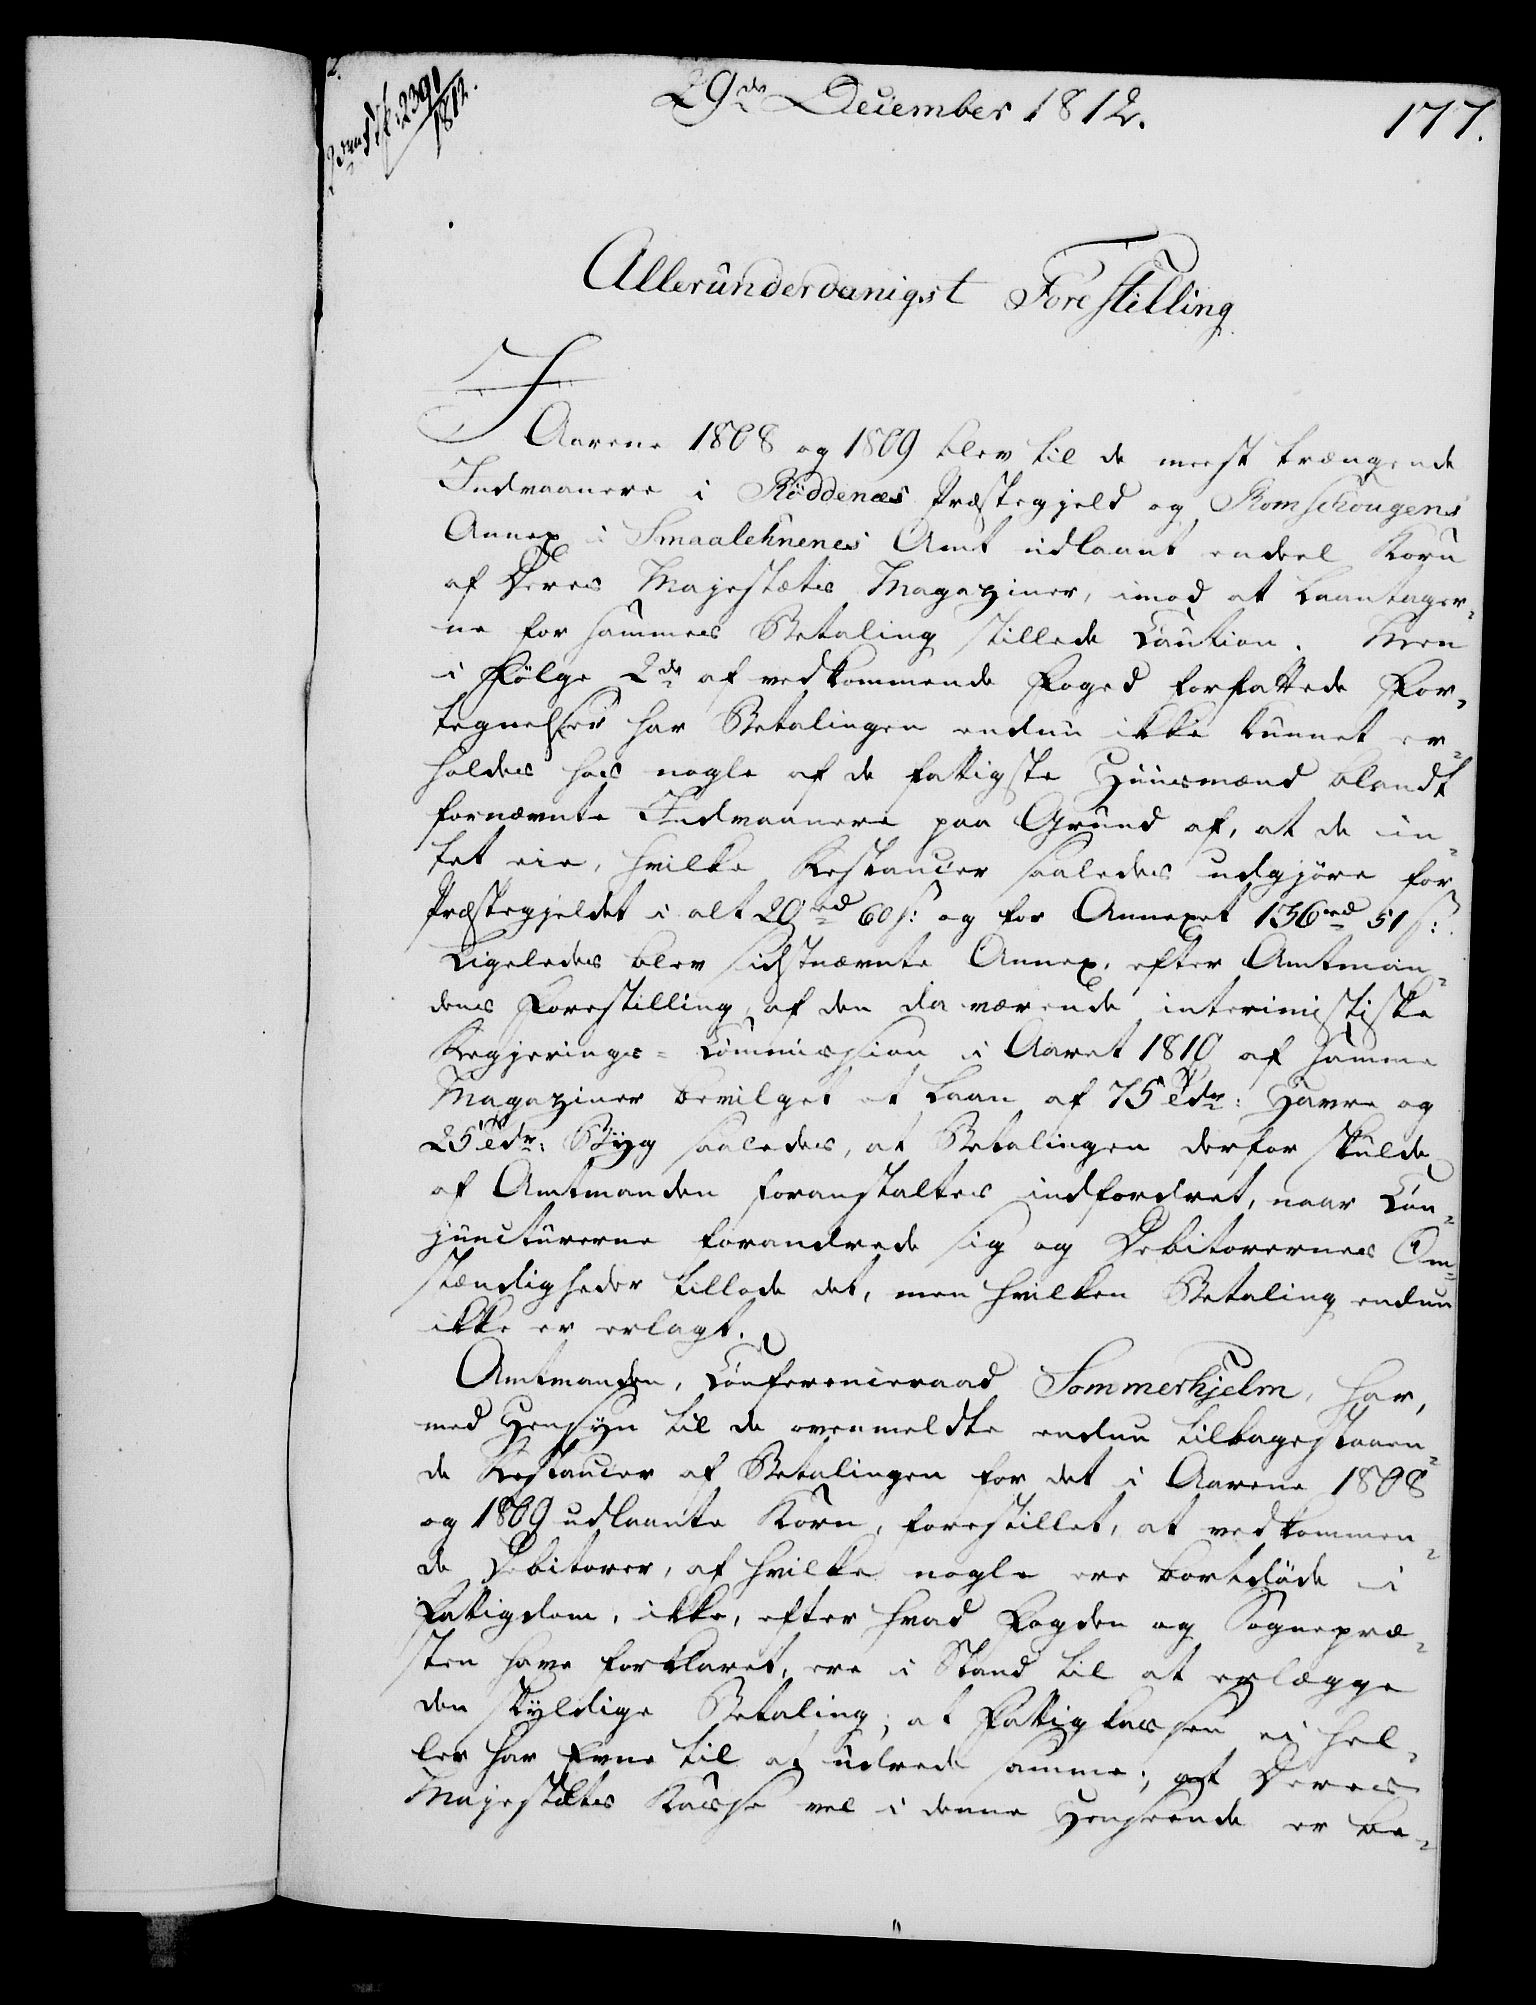 29de December 1812.
177.
2391
1812.
Allerunderdanigst Forestilling
I
Aarene 1808 og 1809 blev til de meest trængende
Indvaanere i Röddenæs Præstegjeld og Romschougens
Annex i Smaalehnenes Amt udlaant endeel Korn
af Deres Majestæts Magaziner, imod at Laantager-
ne for sammes Betaling stillede Caution. Men
i Fölge 2de af vedkommende Foged forfattede For-
tegnelser har Betalingen endnu ikke kunnet er-
holdes hos nogle af de fattigste Huusmænd blandt
fornævnte Indvaanere paa Grund af, at de in-
tet eie, hvilke Restancer saaledes udgjöre for
Præstegjeldet i alt 29rd 60s: og for Annexet 136rd 51s:
Ligeledes blev sidstnævnte Annex, efter Amtman-
dens Forestilling, af den da værende interimistiske
Regjerings-Commission i Aaret 1810 af samme
Magaziner bevilget et Laan af 75 Tdr: Havre og
25 Tdr: Byg saaledes, at Betalingen derfor skulde
af Amtmanden foranstaltes indfordret, naar Con-
juncturerne forandrede sig og Debitorernes Om-
stændigheder tillode det, men hvilken Betaling endnu
ikke er erlagt.
Amtmanden, Conferenceraad Sommerhjelm, har,
med Hensyn til de ovenmeldte endnu tilbagestaaen-
de Restancer af Betalingen for det i Aarene 1808
og 1809 udlaante Korn, forestillet, at vedkommen-
de Debitorer, af hvilke nogle ere bortdöde i
Fattigdom, ikke, efter hvad Fogden og Sognepræ-
sten have forklaret, ere i Stand til at erlægge
den skyldige Betaling; at Fattigkassen ei hel-
ler har Evne til at udrede samme; at Deres
Majestæts Kasse vel i denne Henseende er be-